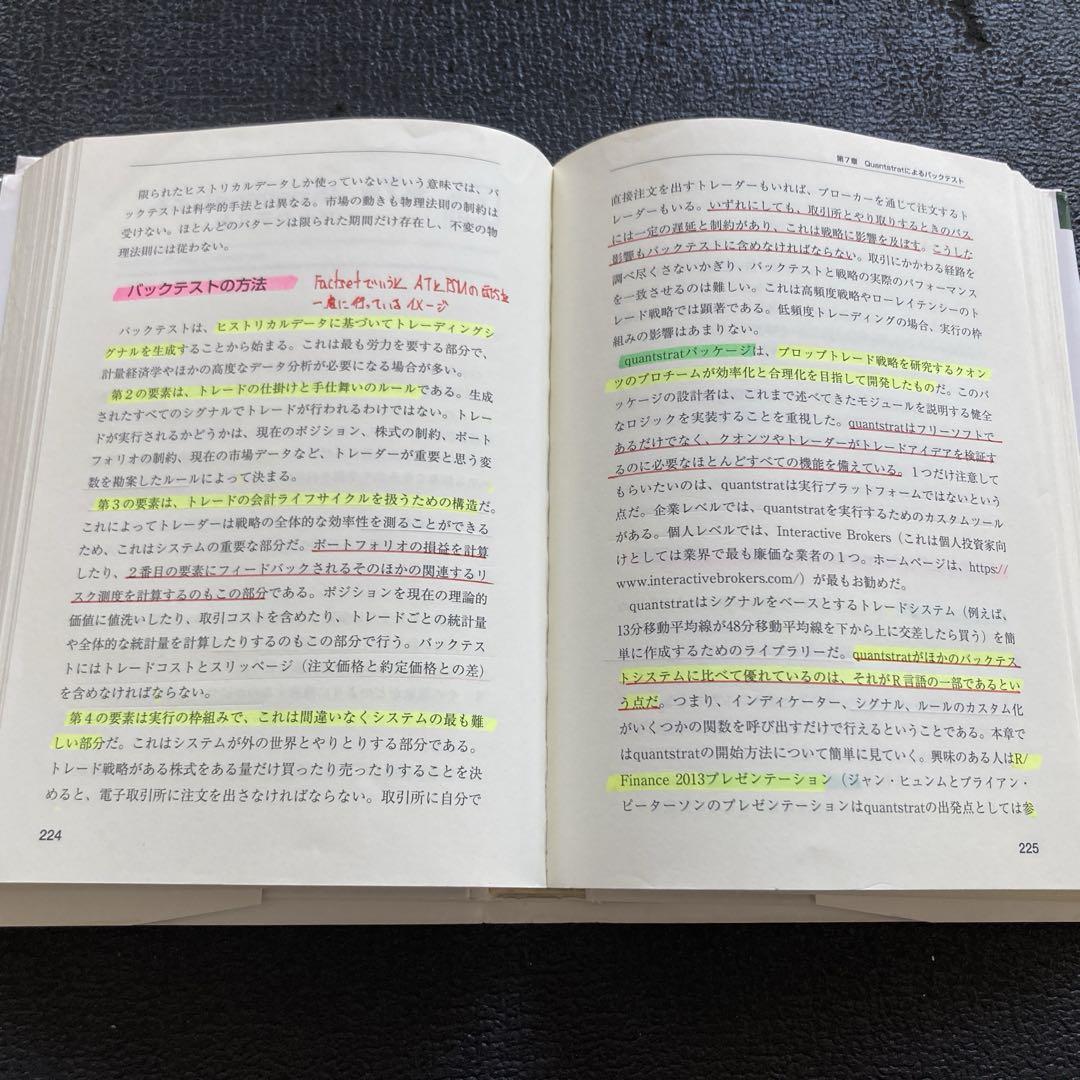 限られたヒストリカルデータしか使っていないという意味では、バ
ックテストは科学的手法とは異なる。市場の動きも物理法則の制約は
受けない。ほとんどのパターンは限られた期間だけ存在し、不変の物
理法則には従わない。
バックテストの方法
Factsetでいうと ATと
一度に行っているイメージ
バックテストは、ヒストリカルデータに基づいてトレーディングシ
グナルを生成することから始まる。これは最も労力を要する部分で、
計量経済学やほかの高度なデータ分析が必要になる場合が多い。
第2の要素は、トレードの仕掛けと手仕舞いのルールである。生成
されたすべてのシグナルでトレードが行われるわけではない。トレー
ドが実行されるかどうかは、現在のポジション、株式の制約、ポート
フォリオの制約、現在の市場データなど、トレーダーが重要と思う変
数を勘案したルールによって決まる。
第3の要素は、トレードの会計ライフサイクルを扱うための構造だ。
これによってトレーダーは戦略の全体的な効率性を測ることができる
ため、これはシステムの重要な部分だ。ポートフォリオの損益を計算
したり、2番目の要素にフィードバックされるそのほかの関連するリ
スク測度を計算するのもこの部分である。ポジションを現在の理論的
価値に値洗いしたり、取引コストを含めたり、トレードごとの統計量
や全体的な統計量を計算したりするのもこの部分で行う。バックテス
トにはトレードコストとスリッページ（注文価格と約定価格との差）
を含めなければならない。
第4の要素は実行の枠組みで、これは間違いなくシステムの最も難
しい部分だ。これはシステムが外の世界とやりとりする部分である。
トレード戦略がある株式をある量だけ買ったり売ったりすることを決
めると、電子取引所に注文を出さなければならない。取引所に自分で
224
第7章 Quantstratによるバックテスト
直接注文を出すトレーダーもいれば、ブローカーを通じて注文するト
レーダーもいる。いずれにしても、取引所とやり取りするときのパス
には一定の遅延と制約があり、これは戦略に影響を及ぼす。こうした
影響もバックテストに含めなければならない。取引にかかわる経路を
調べ尽くさないかぎり、バックテストと戦略の実際のパフォーマンス
を一致させるのは難しい。これは高頻度戦略やローレイテンシーのト
レード戦略では顕著である。低頻度トレーディングの場合、実行の枠
組みの影響はあまりない。
quantstratパッケージは、プロップトレード戦略を研究するクオン
ツのプロチームが効率化と合理化を目指して開発したものだ。このパ
ッケージの設計者は、これまで述べてきたモジュールを説明する健全
なロジックを実装することを重視した。quantstratはフリーソフトで
あるだけでなく、クオンツやトレーダーがトレードアイデアを検証す
るのに必要なほとんどすべての機能を備えている。1つだけ注意して
もらいたいのは、quantstratは実行プラットフォームではないという
点だ。企業レベルでは、quantstratを実行するためのカスタムツール
がある。個人レベルでは、Interactive Brokers（これは個人投資家向
けとしては業界で最も廉価な業者の1つ。ホームページは、https://
www.interactivebrokers.com/）が最もお勧めだ。
quantstratはシグナルをベースとするトレードシステム（例えば、
13分移動平均線が48分移動平均線を下から上に交差したら買う）を簡
単に作成するためのライブラリーだ。quantstratがほかのバックテス
トシステムに比べて優れているのは、それがR言語の一部であるとい
う点だ。つまり、インディケーター、シグナル、ルールのカスタム化
がいくつかの関数を呼び出すだけで行えるということである。本章で
はquantstratの開始方法について簡単に見ていく。興味のある人はR/
Finance 2013プレゼンテーション（ジャン・ヒュンムとブライアン・
ピーターソンのプレゼンテーションはquantstratの出発点としては参
225